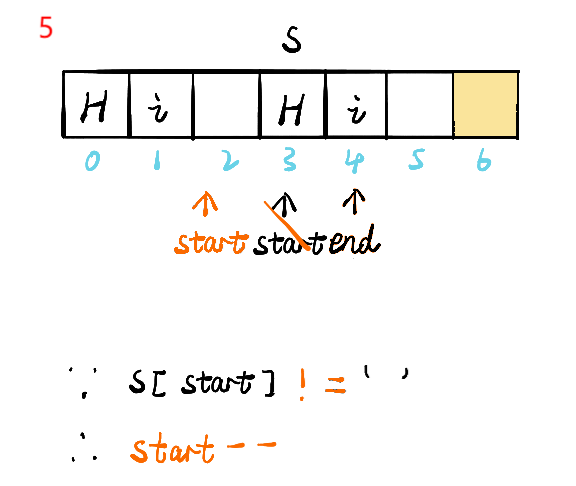 5
S
H i H i
0 1 2 3 4 5 6
start start end
∵ S[start] != ' '
∴ start--